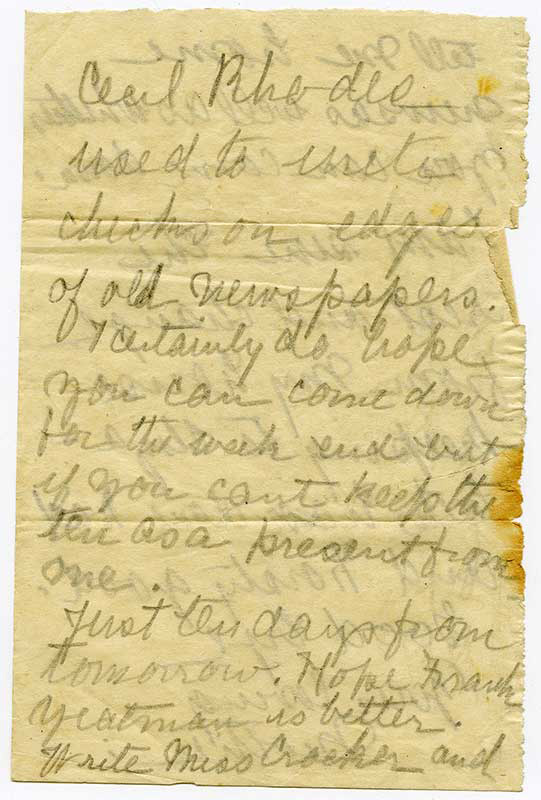 Cecil Rhodes
used to write
checks on edges
of old newspapers.
I certainly do hope
you can come down
for the week end but
if you cant keep the
ten as a present from
me.
Just ten days from
tomorrow. Hope Frank
Yeatman is better.
Write Miss Crocker and